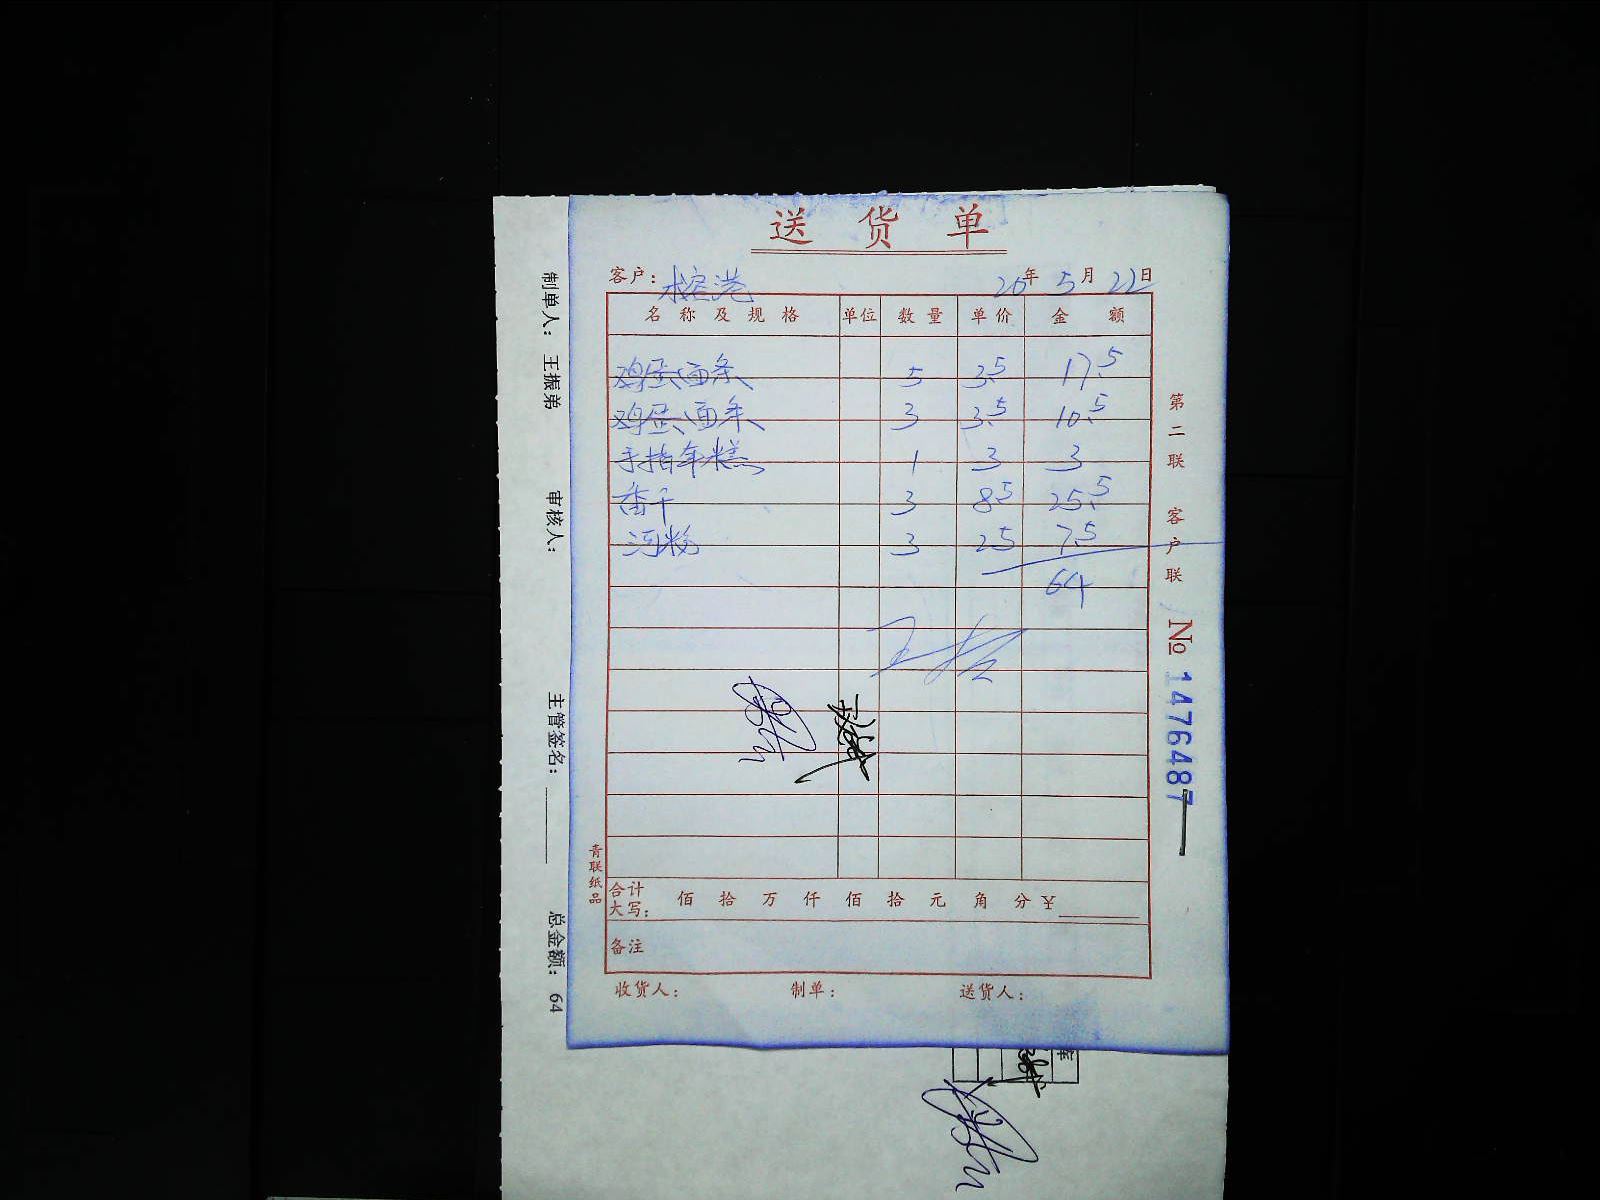 送货单
客户：榕港 20年5月22日
名称及规格 单位 数量 单价 金额
鸡蛋面条 5 3.5 17.5
鸡蛋面条 3 3.5 10.5
手指年糕 1 3 3
番干 3 8.5 25.5
河粉 3 2.5 7.5
64
合计大写： 佰 拾 万 仟 佰 拾 元 角 分 ¥
备注
收货人： 制单： 送货人：
青联纸品
第二联 客户联
№ 1476487
制单人：王振弟 审核人： 主管签名： 总金额：64